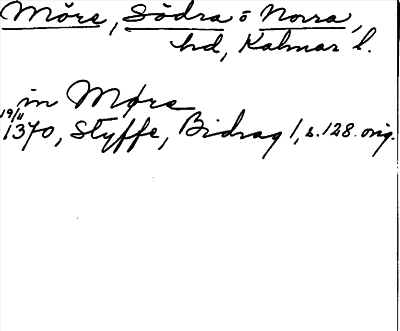 Möre, Södra o Norra,
hd, Kalmar l.
in Møre
19/11
1370, Styffe, Bidrag 1, s. 128. orig.